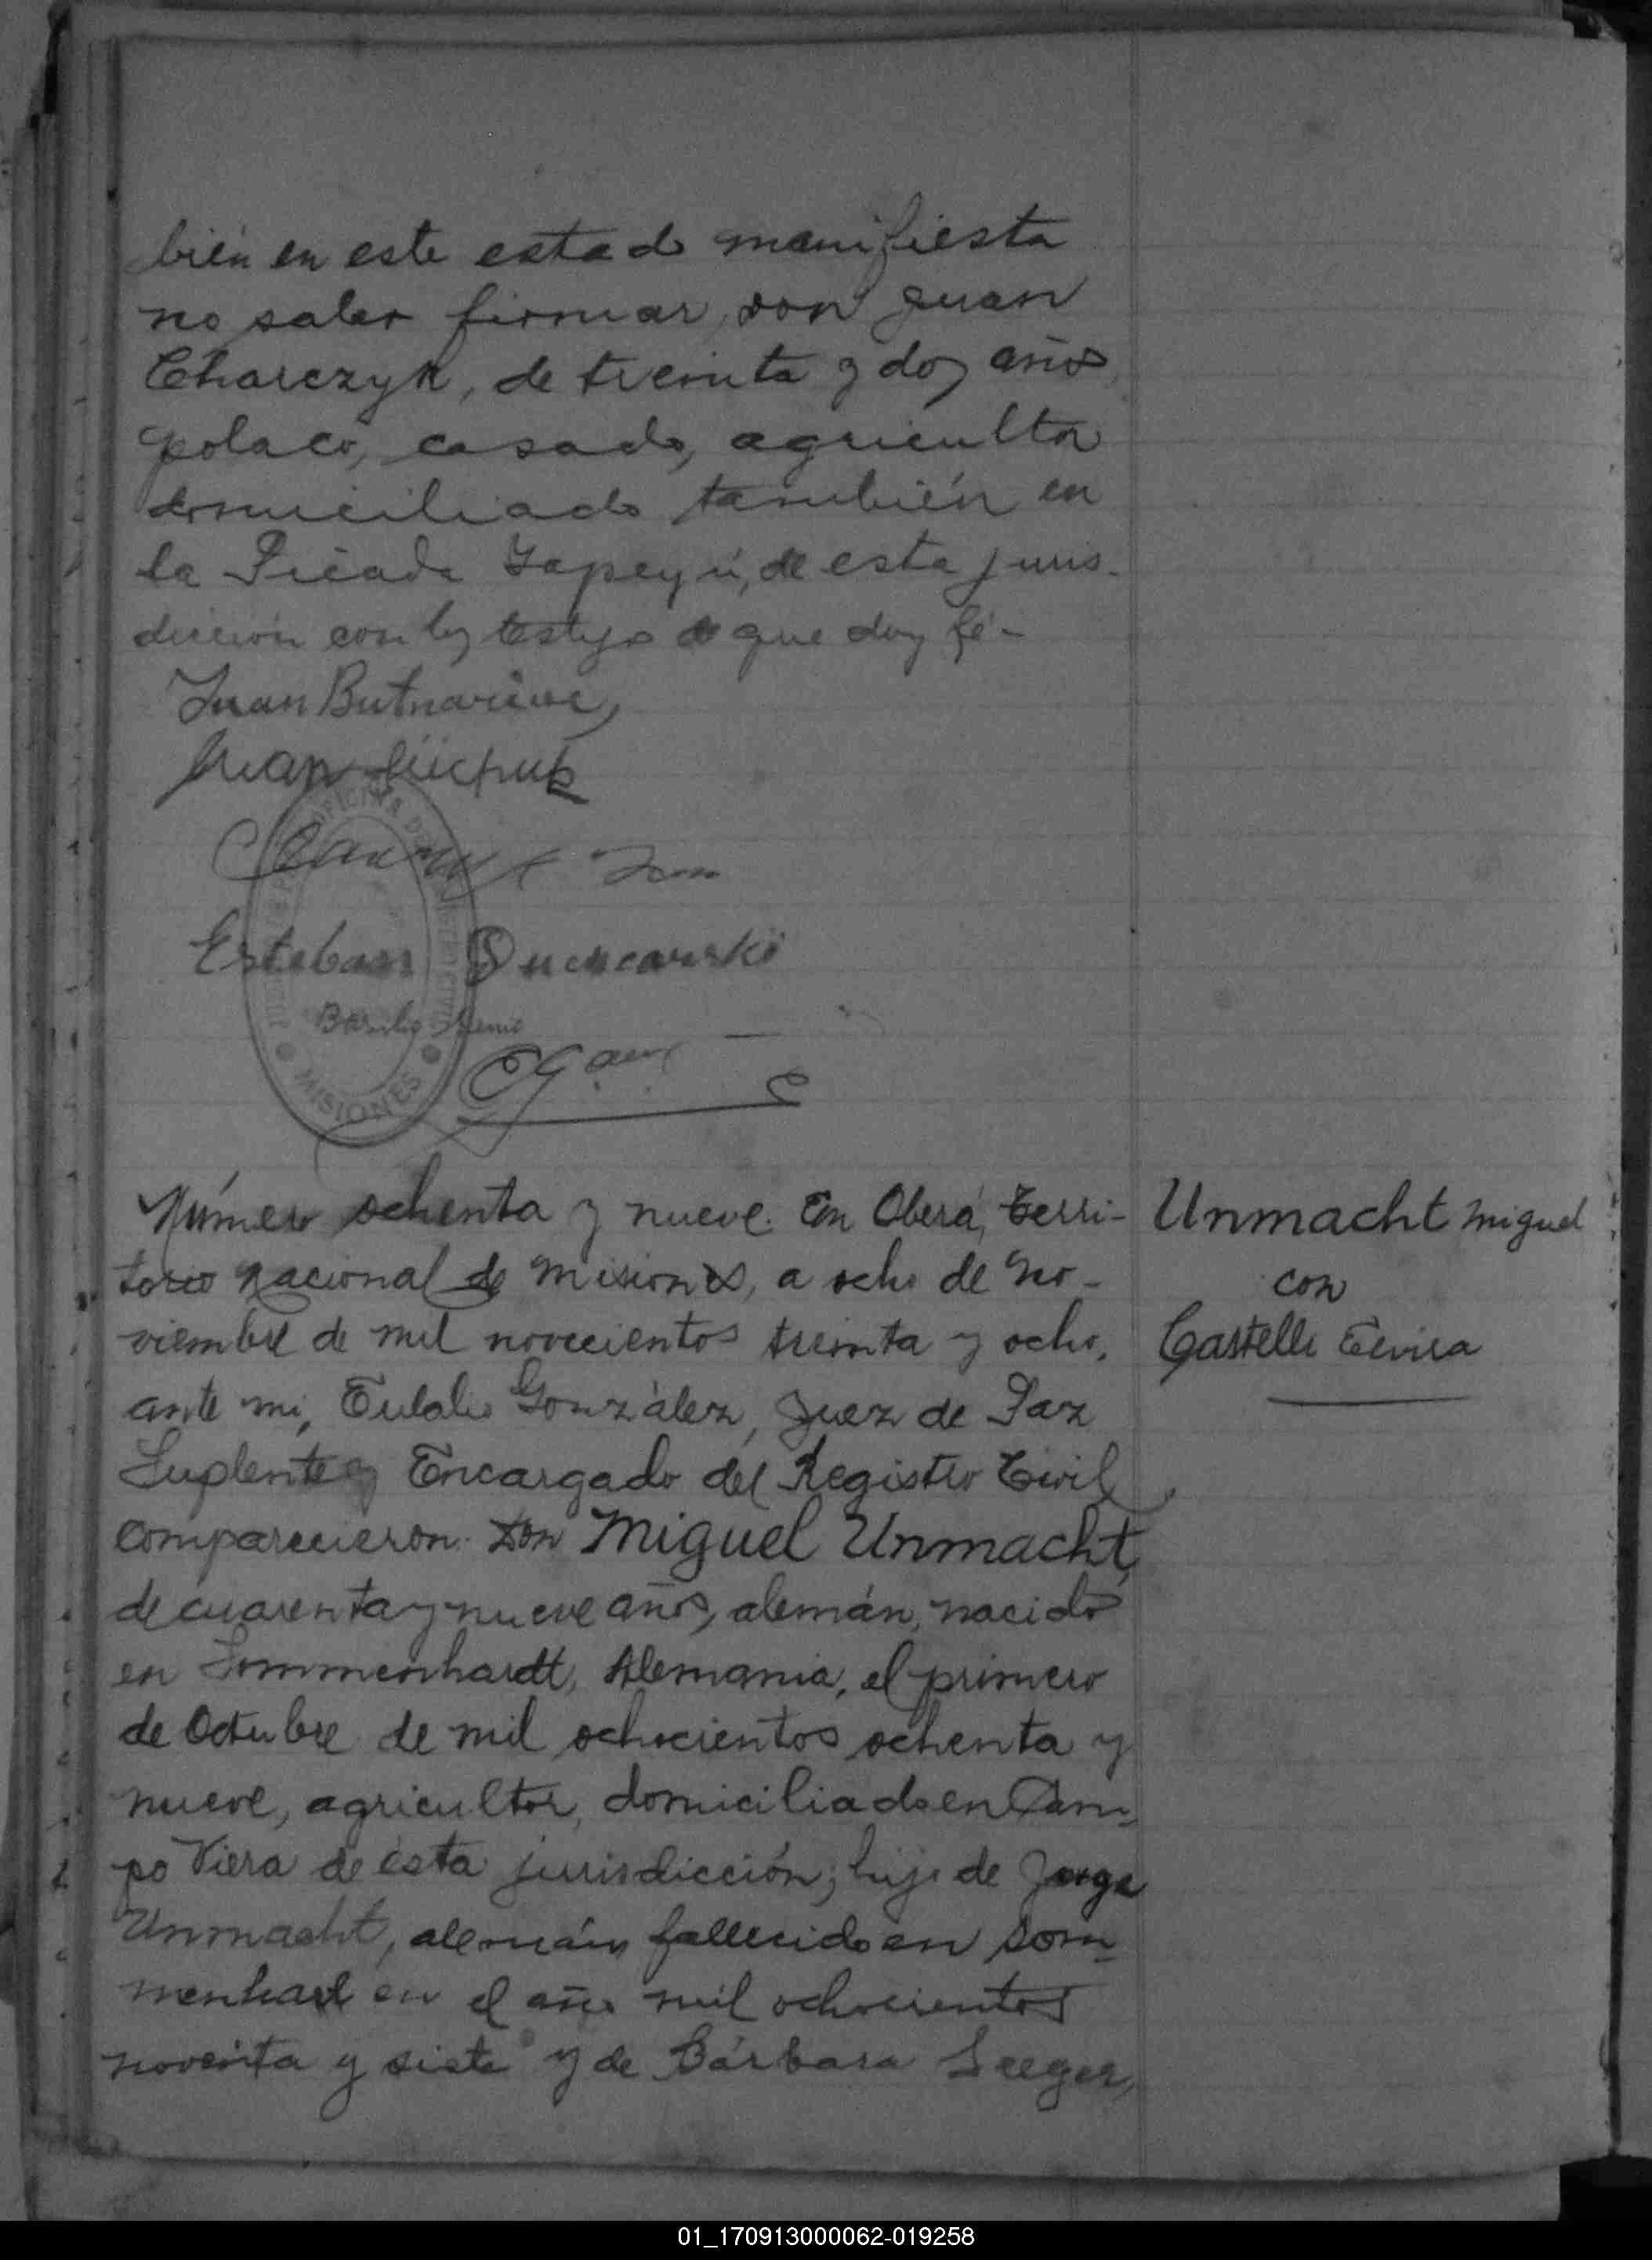 bién en este estado manifiesta
no saber firmar, don Juan
Charczyk, de treinta y dos años
polaco, casado, agricultor
domiciliado también en
la Picada Yapeyú, de esta juris-
dicción con los testigos de que doy fé-
Juan
Juan
OFICINA DE
MISIONES
Esteban
Basilio
Número ochenta y nueve. En Oberá, terri-
torio Nacional de Misiones, a ocho de No-
viembre de mil novecientos treinta y ocho,
ante mi, Eulalio González, Juez de Paz
Suplente y Encargado del Registro Civil
comparecieron: Don Miguel Unmacht,
de cuarenta y nueve años, alemán, nacido
en Sommenhardt, Alemania, el primero
de Octubre de mil ochocientos ochenta y
nueve, agricultor, domiciliado en Cam-
po Viera de ésta jurisdicción; hijo de Jorge
Unmacht, alemán fallecido en Som-
menhard en el año mil ochocientos
noventa y siete y de Bárbara Seeger,
Unmacht Miguel
con
Castelli Elvira
01_170913000062-019258